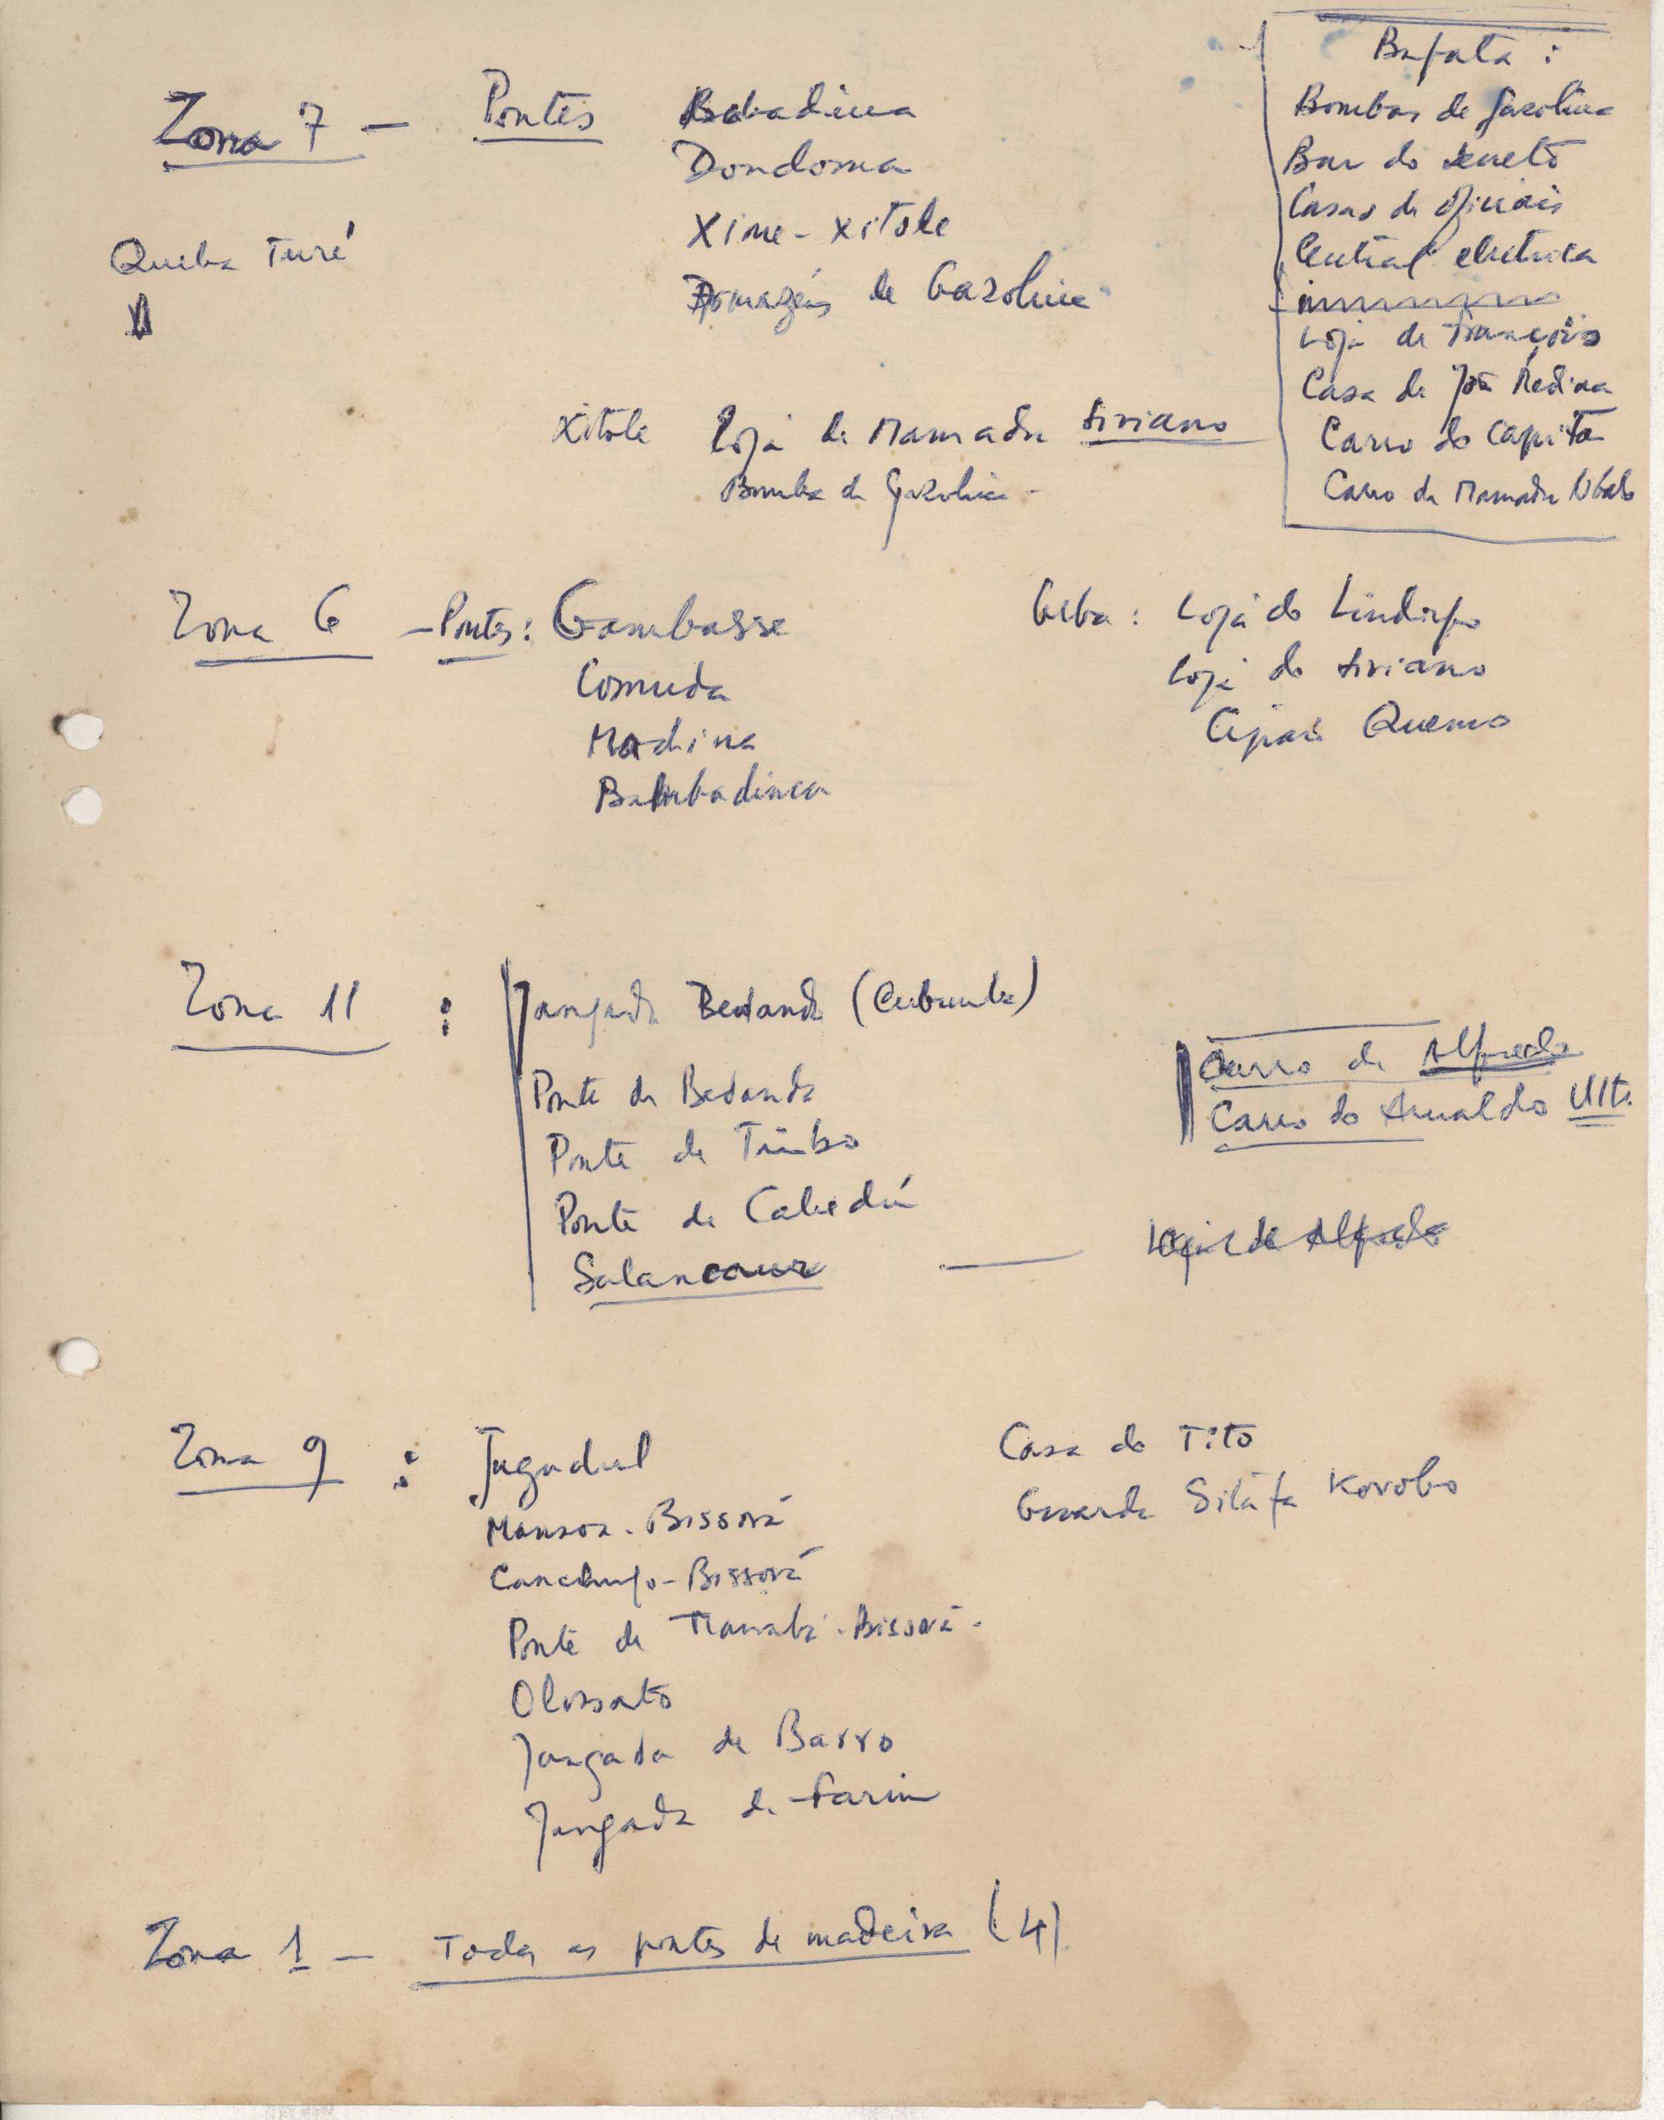 Zona 7 - Pontes Babadinca
Dondoma
Xime - Xitole
Armazéns de Gazolina
Queba Turé
Xitole Loja de Mamadu Siriano
Bomba de Gazolina -
Bafata :
Bombas de gazolina
Bar do
Casas de oficiais
Central electrica
Loja de
Casa de João
Carro do Capitão
Carro de Mamadu
Zona 6 - Pontes : Gambasse
Comuda
Madina
Bambadinca
Geba : Loja do Lindolfo
Loja do Siriano
Cipaio Quemo
Zona 11 : Jangada Bedanda (Cubumba)
Ponte de Bedanda
Ponte de Timbo
Ponte de Cabedú
Salancaur
Carro de Alfredo
Carro do Arnaldo Ult.
Loja de Alfredo
Zona 9 : Jugudul
Mansoa - Bissorã
Canchungo - Bissorã
Ponte de - Bissorã -
Olossato
Jangada de Barro
Jangada de Farim
Casa do Tito
Guarda Sitafa Korobo
Zona 1 - Todas as pontes de madeira (4)